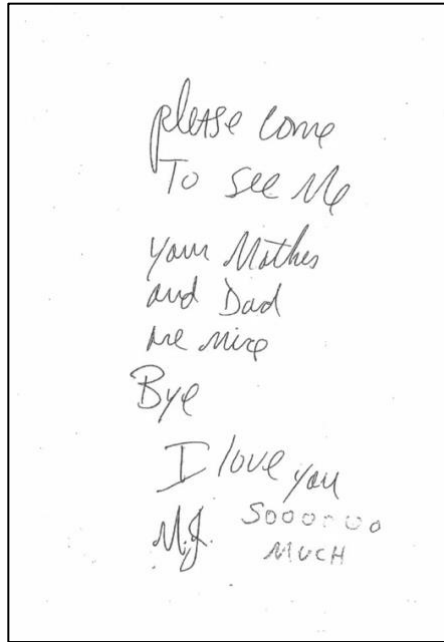 please come
To see Me
your Mother
and Dad
are nice
Bye
I love you
M.J. Soooooo
MUCH